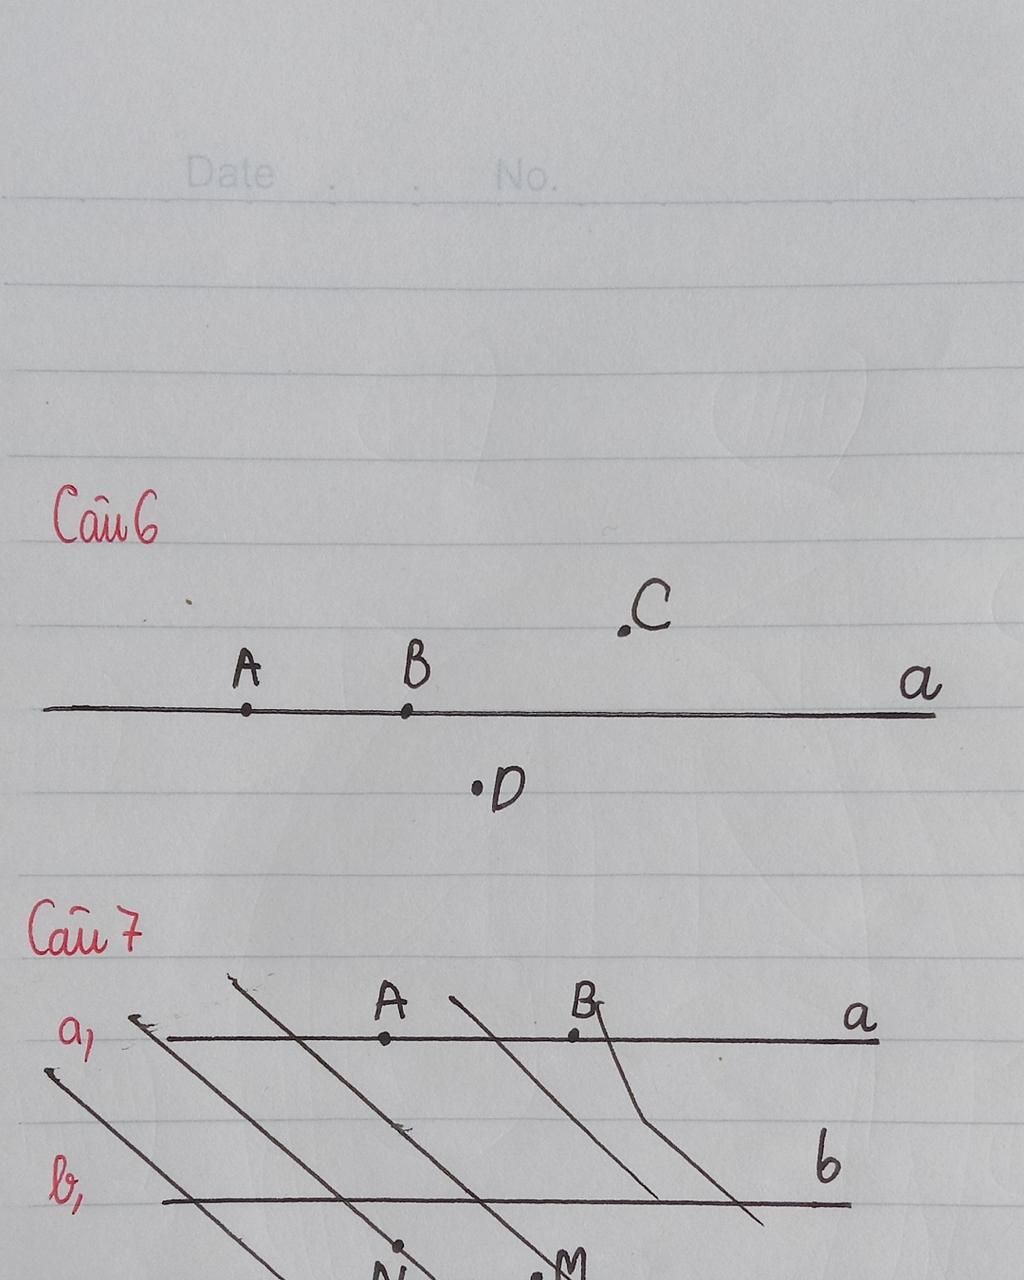 Date . . No.
Câu 6
.C
A B a
.D
Câu 7
a, A B a
b, b
N M